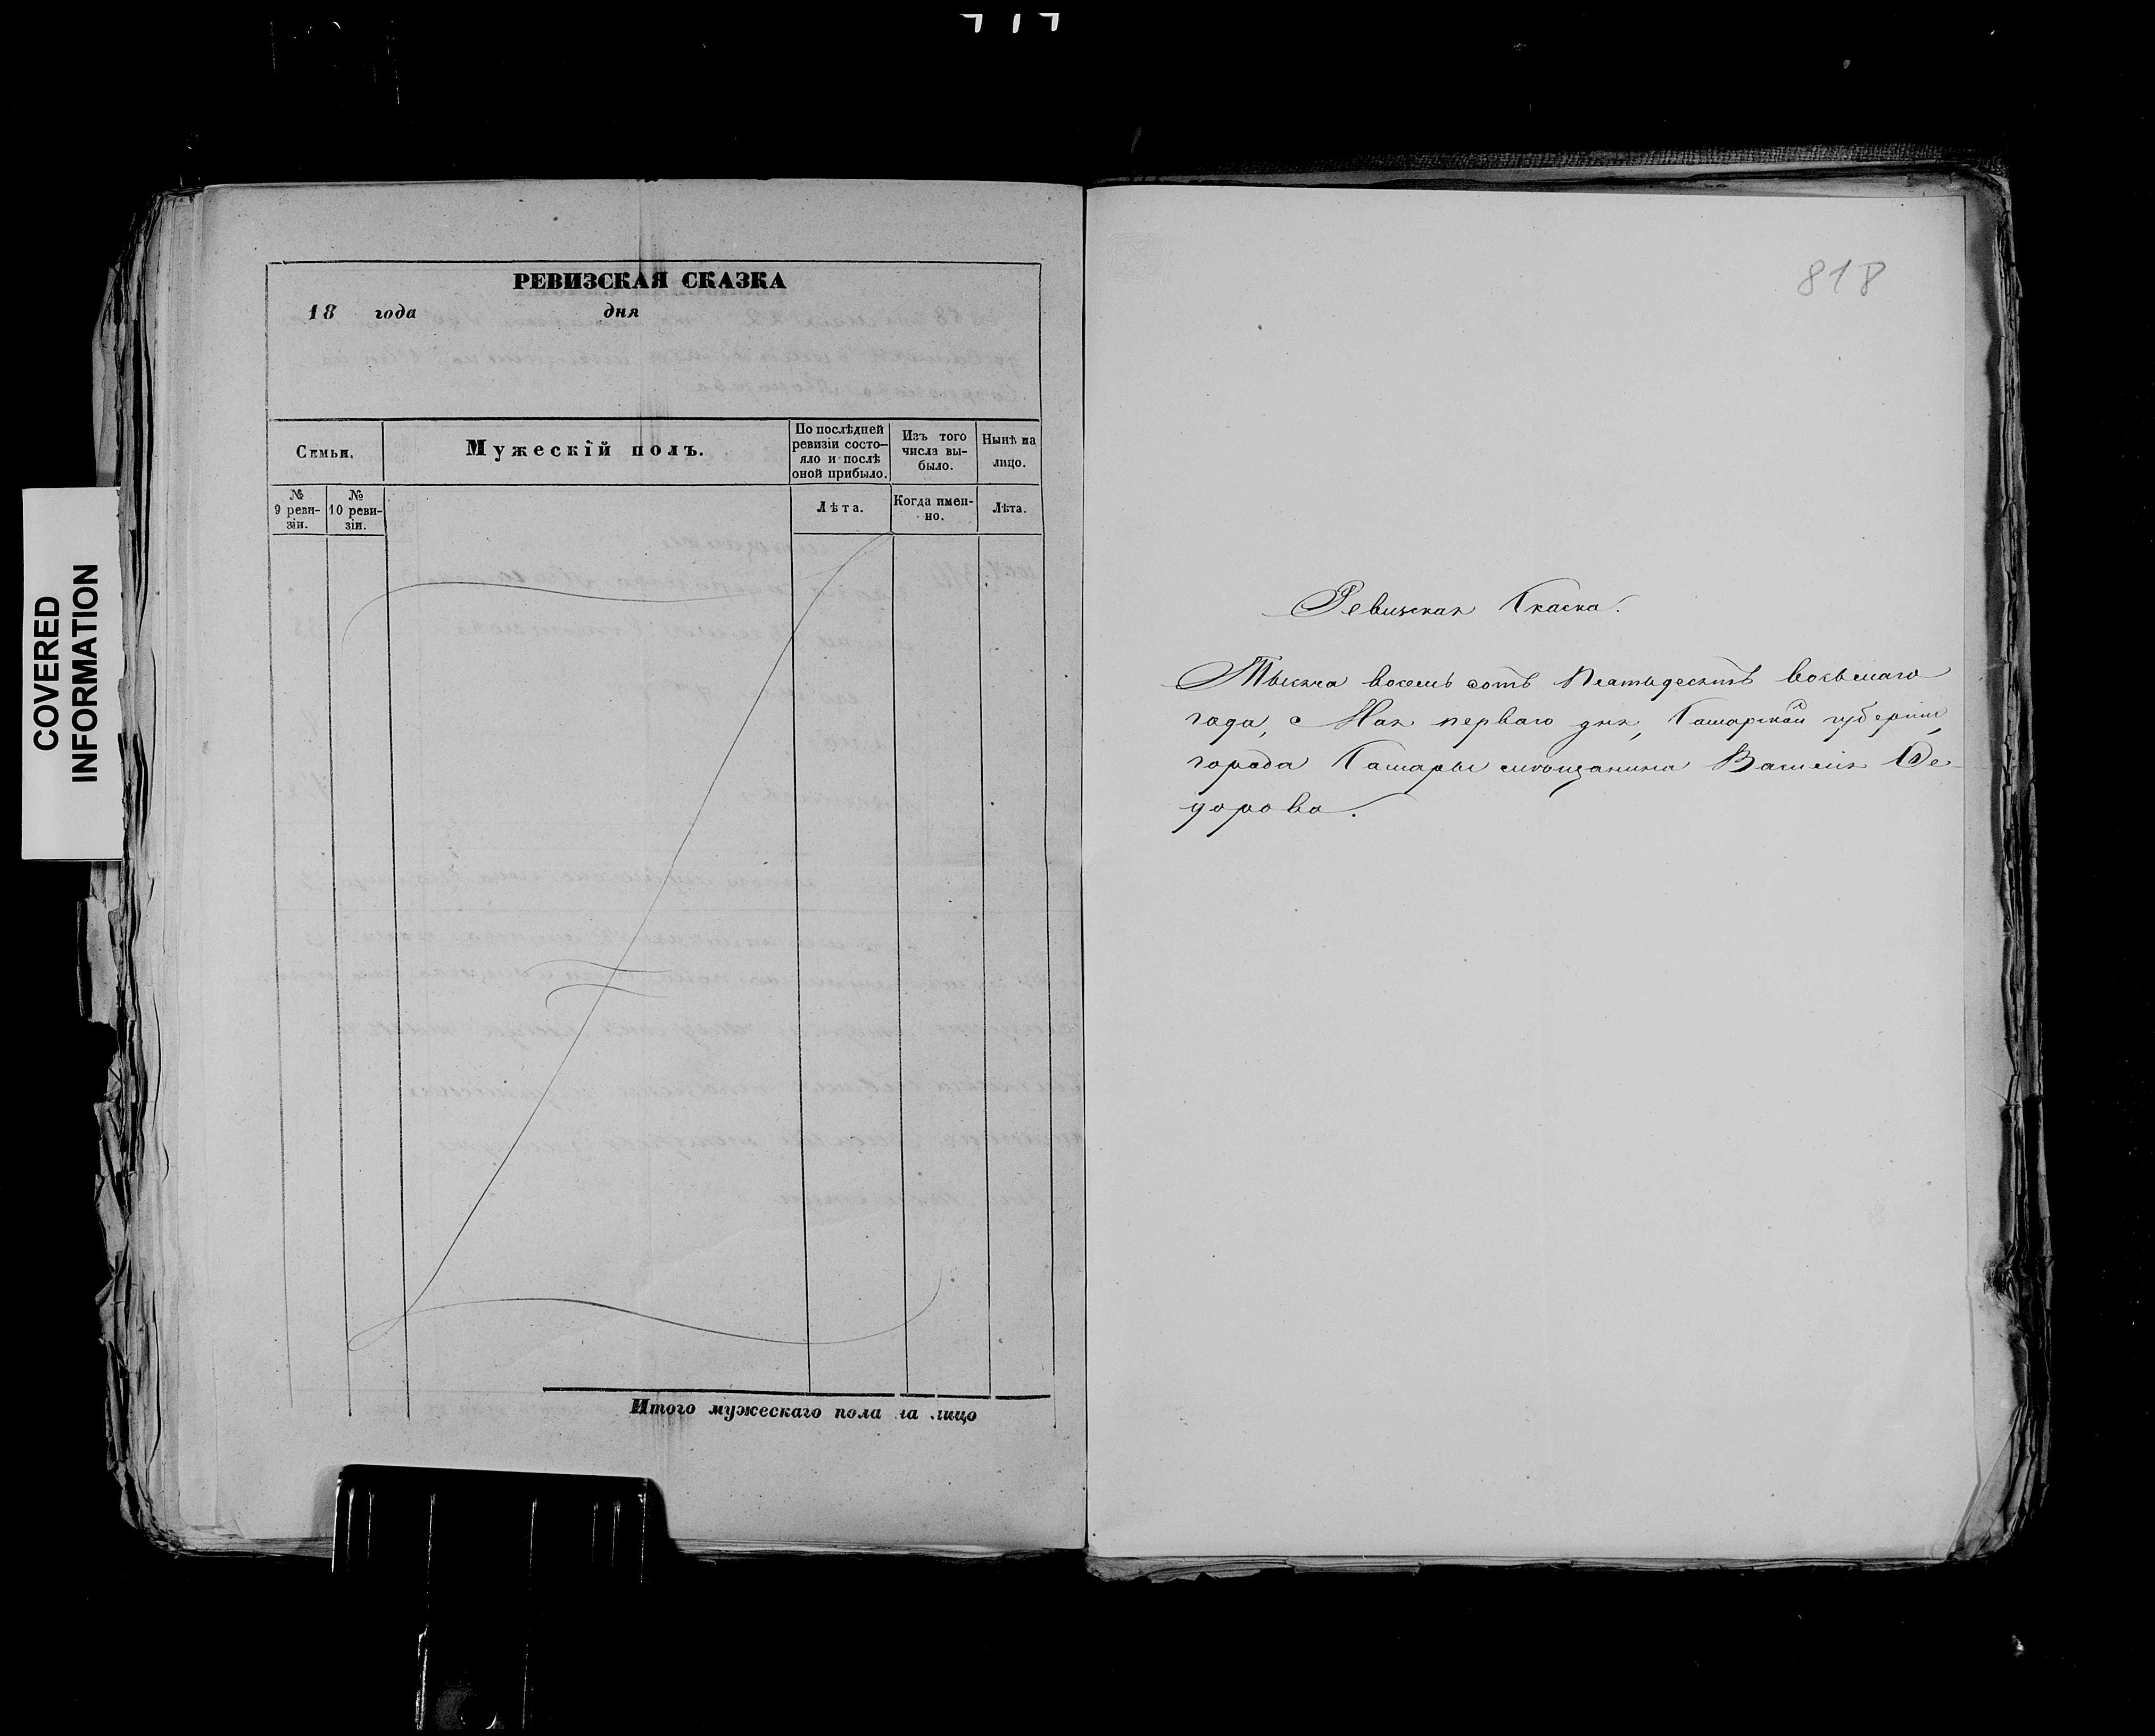 РЕВИЗСКАЯ СКАЗКА
18 года дня
Семьи.
Мужескій полъ.
По послѣдней ревизіи состо-
яло и послѣ
оной прибыло.
Изъ того
числа вы-
было.
Нынѣ на
лицо.
№
9 реви-
зіи.
№
10 реви-
зіи.
Лѣта.
Когда имен-
но.
Лѣта.
Итого мужескаго пола на лицо
COVERED
INFORMATION
818
Ревизская Скаска.
Тысяча восемь сотъ Пятьдесятъ восьмаго
года, Мая перваго дня, Самарской губерніи,
города Самары мѣщанина Василія Фе-
дорова.